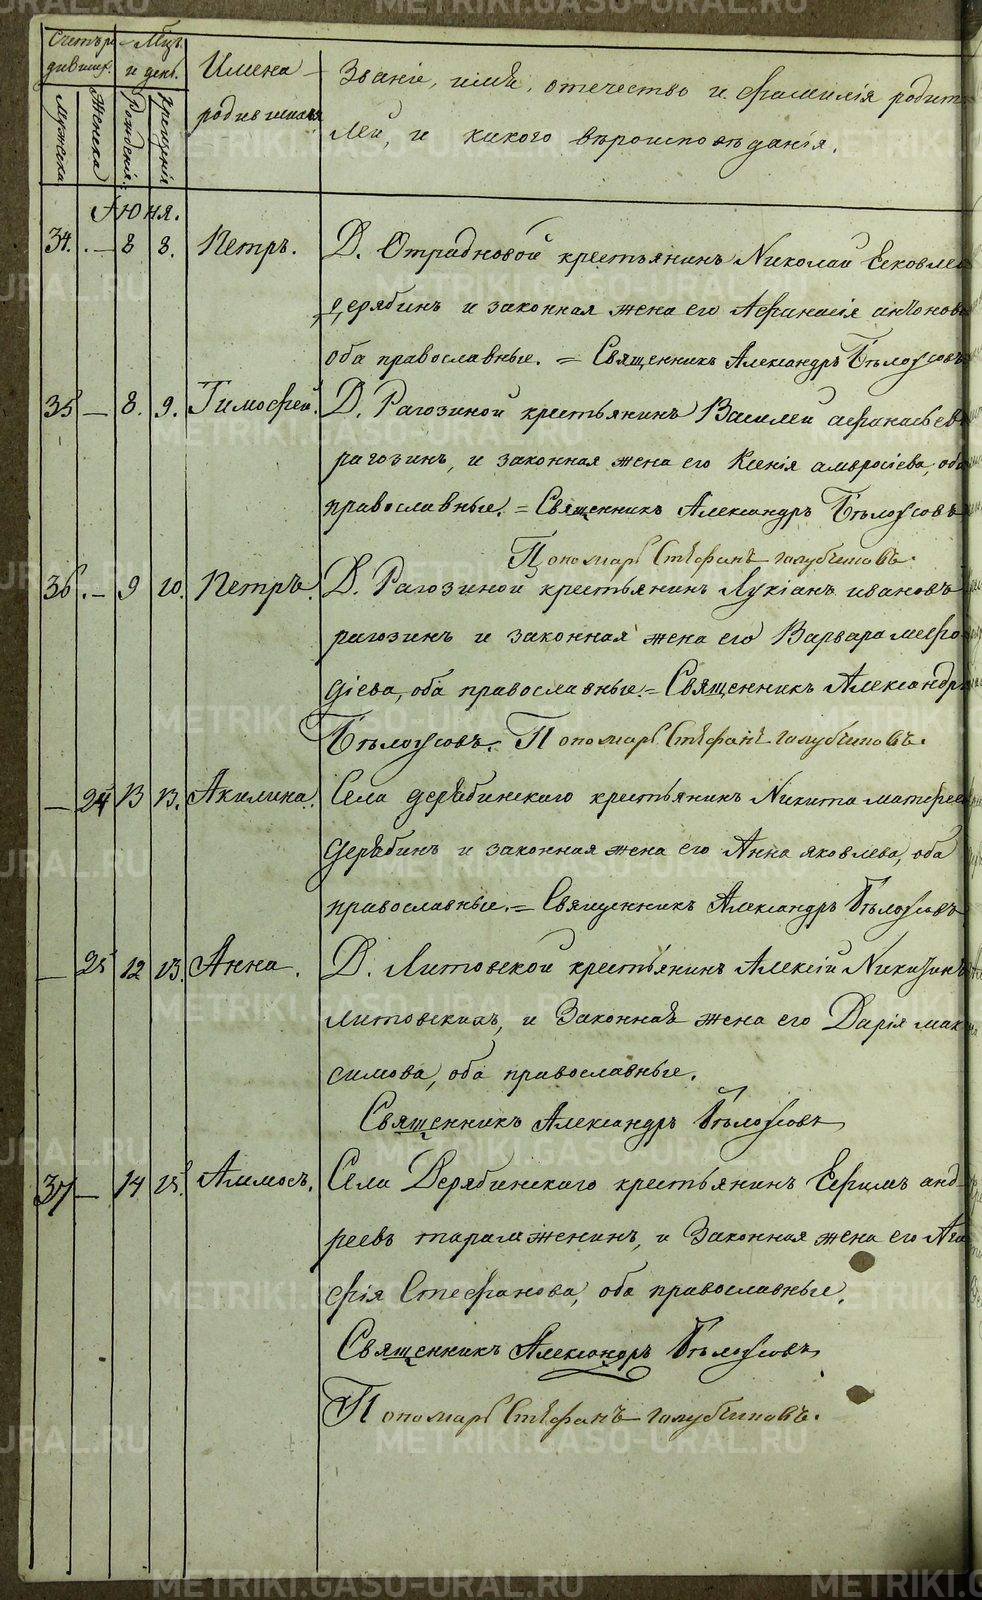 METRIKI.GASO-URAL.RU
Счетъ ро-
дивших.
Мужеска
Женска
Мѣц.
и день.
Рожденія.
Крещенія
Имена
родившихся
Званіе, имя, отечество и фамилія родите-
лей, и какого вѣроисповѣданія.
Іюня.
34. — 8 8. Петръ. Д. Отрадновой крестьянинъ Николай Яковлевъ
дерябинъ и законная жена его Афанасія антонова
оба православные. = Священникъ Александръ Бѣлоусовъ
35 — 8. 9. Тимофей. Д. Рагозиной крестьянинъ Василей афанасьевъ
рагозинъ, и законная жена его Ксенія амвросіева, оба
православные. = Священникъ Александръ Бѣлоусовъ
Пономарь Стефанъ голубчиковъ.
36. — 9 10. Петръ. Д. Рагозиной крестьянинъ Лукіанъ ивановъ
рагозинъ и законная жена его Варвара мефо-
діева, оба православные. = Священникъ Александръ
Бѣлоусовъ. Пономарь Стефанъ голубчиковъ.
— 24 13 13. Акилина. Села дерябинскаго крестьянинъ Никита матфеевъ
Дерябинъ и законная жена его Анна яковлева, оба
православные. = Священникъ Александръ Бѣлоусовъ
— 25 12 13. Анна. Д. Литовской крестьянинъ Алексій Никитинъ
литовскихъ, и Законная жена его Дарія мак-
симова, оба православные.
Священникъ Александръ Бѣлоусовъ
37 — 14 15. Аммосъ. Села Дерябинскаго крестьянинъ Ефимъ анд-
реевъ тарамженинъ, и Законная жена его Ага-
фія Стефанова, оба православные.
Священникъ Александръ Бѣлоусовъ
Пономарь Стефанъ голубчиковъ.